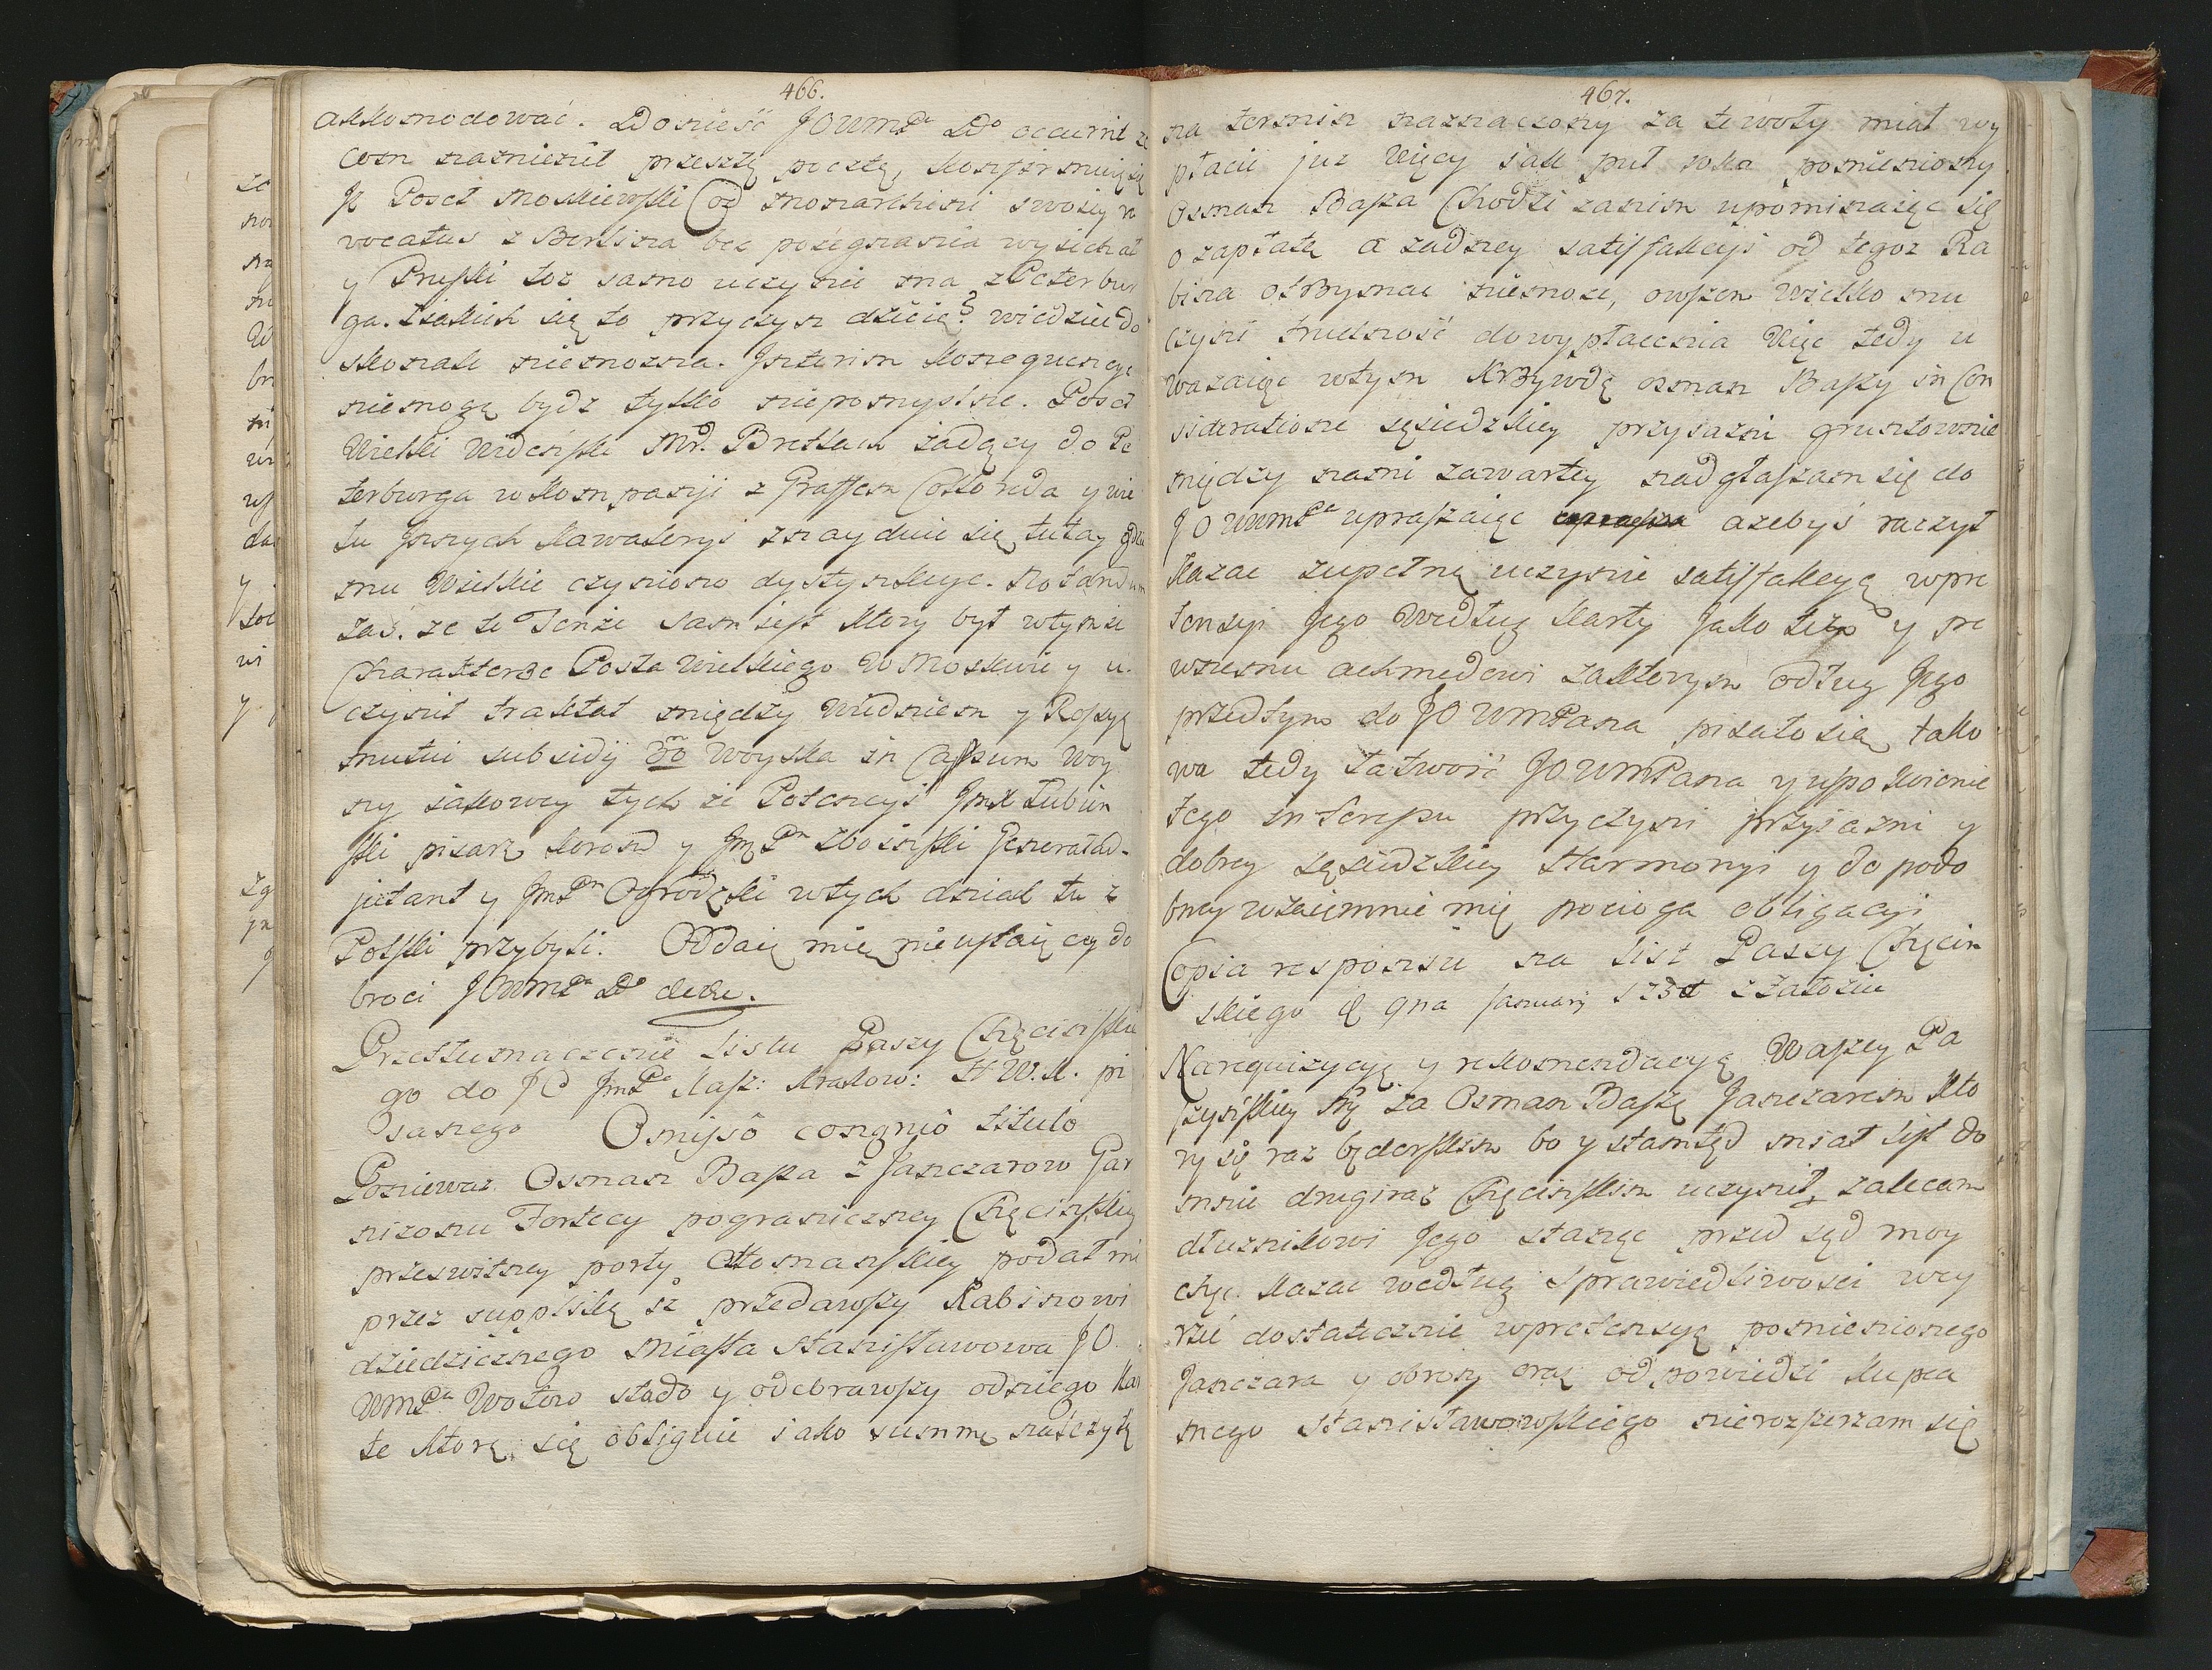 466.
akkomodować. Donieść JOWMPa Do occurrit że
com namienił przeszłą pocztą, konfirmuię się
Jż Poseł Moskiewski od monarchini swoiey re
vocatus z Berlina bez pożegnania wyiechał
y Pruski toż samo uczynić ma z Peterbur
ga. Z iakich się to przyczyn dzieie? wiedzieć do
skonale niemożna. Jnterim konsequencye
niemogą bydz tylko niepomyslne. Poseł
Wielki Wideński Mr. Bretlach iadący do Pe
terburga w kompanij z Graffem Colloreda y wie
lu Jnnych Kawalerij znayduie się tutay gdzie
mu Wielkie czyniono dystynkcye. Notandum
zaś. że te Tenże Sam iest ktory był wtymże
Charakterze Posła Wielkiego w Moskwie y u.
czynił traktat między Widniem y Rossyą
mutui subsidij 30 m Woyska in Casum Woy
ny iakowey tychże Potencyi JmX Łubień
ski pisarz koronn y JmPn Zboiński Generaład-
jutant y JmPn Ogrodzki wtych dniach tu z
Polski przybyli. Oddaię mię nieustaiącey do
broci JOWMPa Do etc.
Przetłumaczenie Listu Paszy Chęcińskie
go do JO JmPa Kasz: Krakow: H W. K. pi
sanego Omijsô congruô titulo
Ponieważ Osman Basza z Janczarow Gar
nizonu Fortecy pograniczney Chęcińskiey
przeswitney porty Ottomańskiey podał mi
przez supplikę iż przedawszy Rabinowi
dziedzicznego Miasta Stanisławowa JO.
WMPa Wołow stado y odebrawszy odniego Kar
te ktorą się obliguie iako summę należytą
467.
na termin naznaczony za te woły miał wy
płacić już więcy iak puł roka pomieniony
Osman Basza Chodzi zanim upominaiąc się
o zapłatę a żadney satisfakcyi od tegoż Ra
bina otrzymać niemoże, owszem Wielko mu
czyni trudność dowypłacenia Więc tedy u
ważaiąc wtym krzywdę osman Baszy in Con
sideratione sąsiedzkiey przyiaźni gruntownie
między nami zawartey nadgłaszam się do
JOWMPa upraszaiąc ażebyś raczył
kazać zupełną uczynić satisfakcyą wpre
tensyi Jego Według karty Jako też y pe
wnemu achmedowi zaktorym odług Jego
przedtym do JOWMPana pisało się, tako
wa tedy łatwość JOWMPana y uspokoienie
tego interessu przyczyni przyiaźni y
dobrey sąsiedzkiey Harmonyi y do podo
bney wzaiemnie mię pociąga obligacyi
Copia responsu na List Paszy Chęciń
skiego d 9na Januarij z Załoziec
Narequizycyą y rekomendacyą Waszey Pa
szyńskiey Mci za Osman Baszą Janczarem kto
ry się raz będerskim bo y stamtąd miał list do
mnie drugiraz Chęcińskim uczynił, zalecam
dłużnikowi Jego stanąc przed sąd moy
chcąc kazać według sprawiedliwości wey
rzić dostatecznie wpretensyą pomienionego
Janczara y obrony oraz odpowiedzi kupca
mego Stanisławowskiego nierozszerzam się